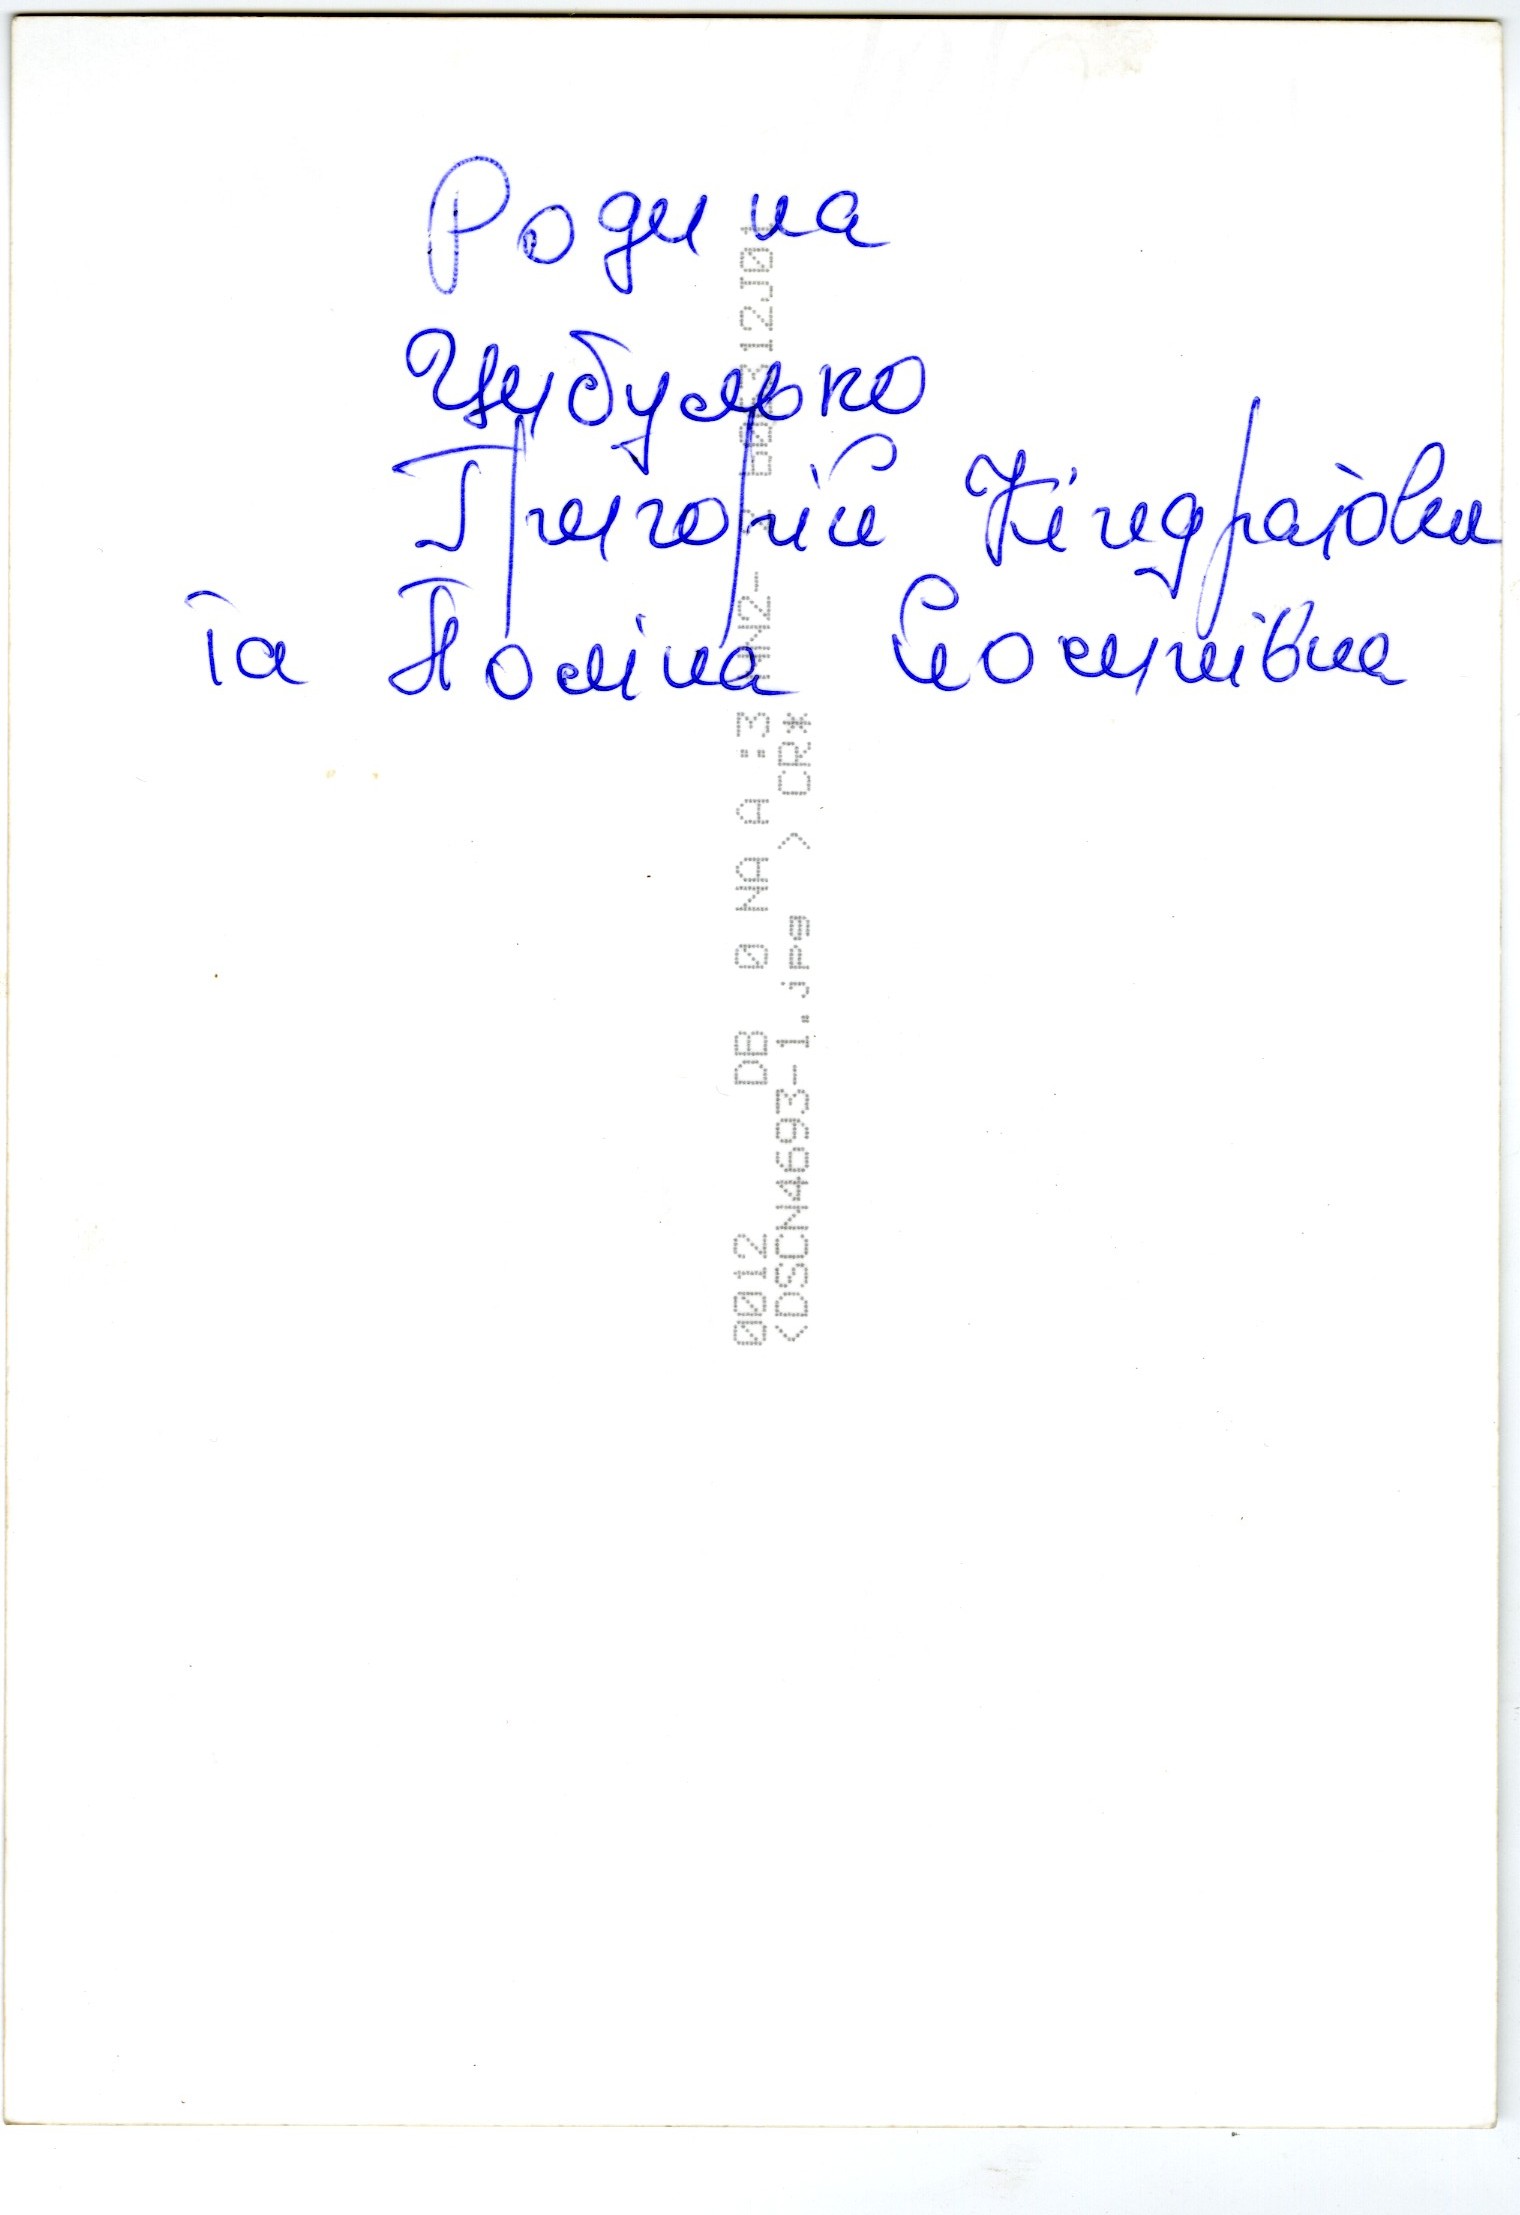 Родина
Цибулько
Григорій Кіндратови
та Поліна Йосипівна
0012 DB 0 NA A :3
<DSCN4693-1.jpg > CR*